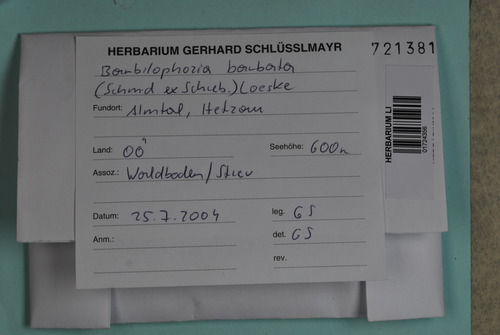 HERBARIUM GERHARD SCHLÜSSLMAYR
721381
Barbilophozia barbata
(Schmid ex Schreb.) Loeske
Fundort: Almtal, Hetzau
Land: OÖ Seehöhe: 600m
Assoz.: Waldboden/Streu
Datum: 25.7.2004 leg. GS
Anm.: det. GS
rev.
HERBARIUM LI
01724356